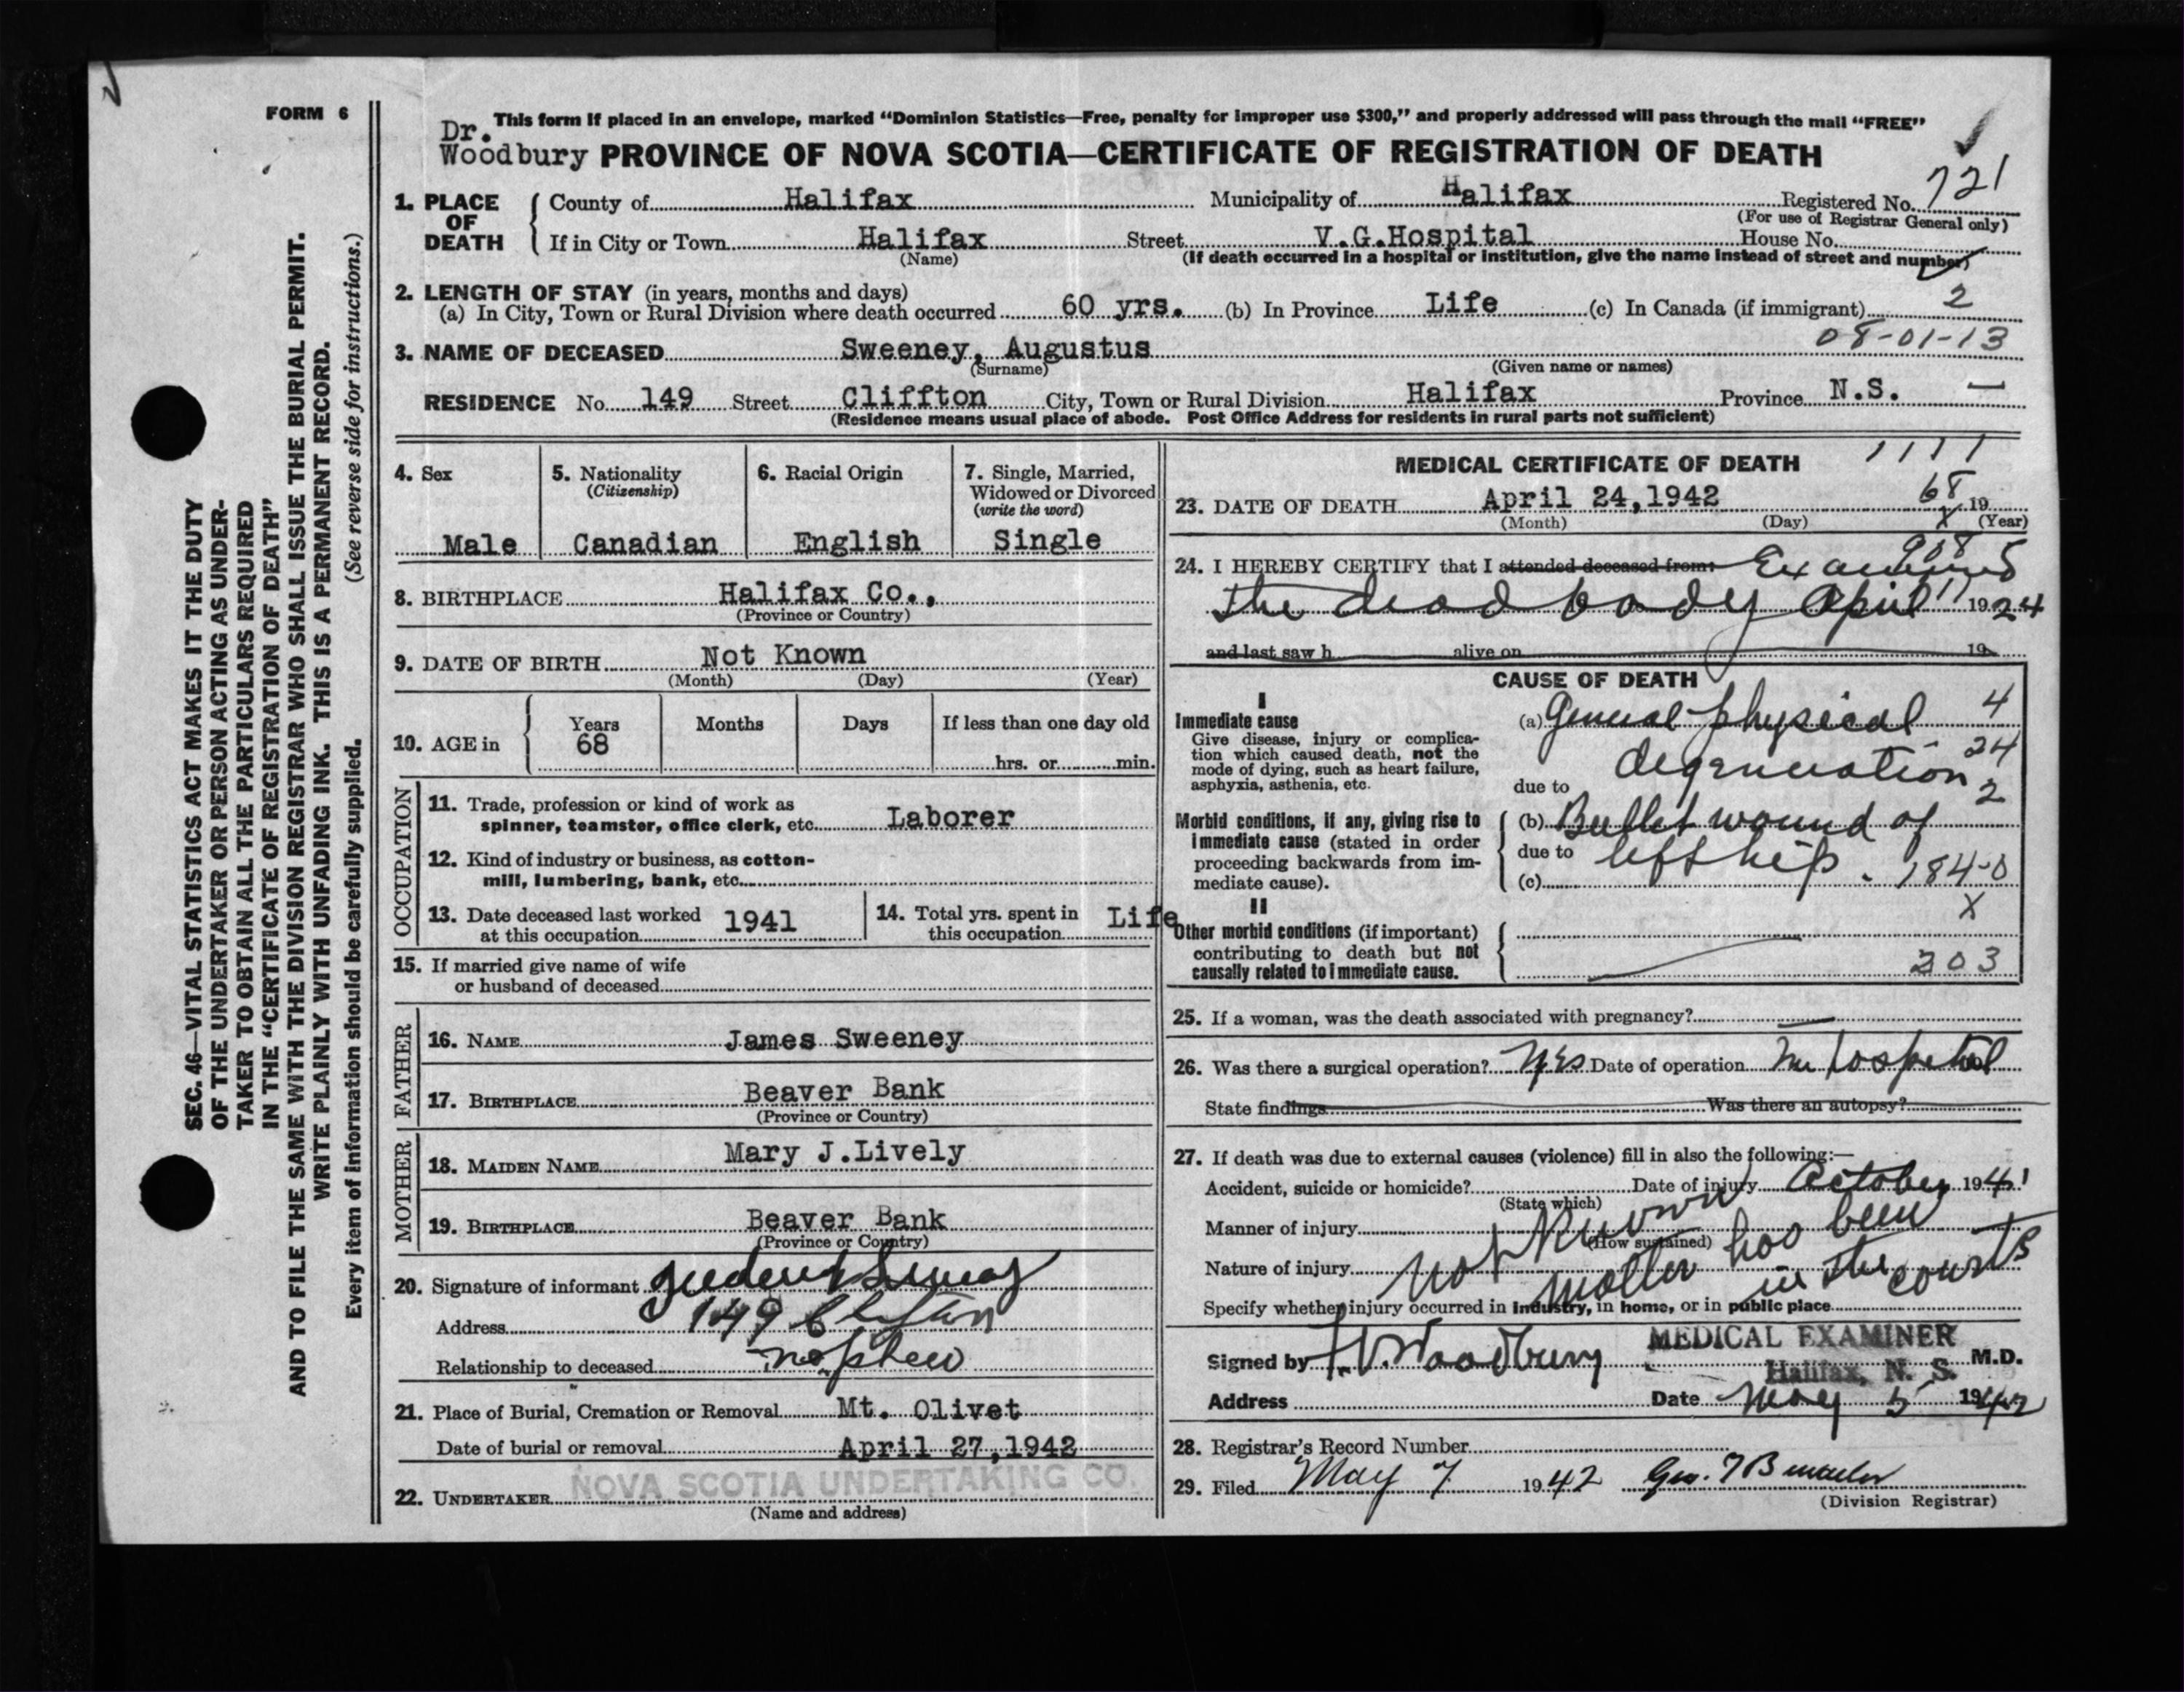 FORM 6
SEC. 46—VITAL STATISTICS ACT MAKES IT THE DUTY
OF THE UNDERTAKER OR PERSON ACTING AS UNDER-
TAKER TO OBTAIN ALL THE PARTICULARS REQUIRED
IN THE "CERTIFICATE OF REGISTRATION OF DEATH"
AND TO FILE THE SAME WITH THE DIVISION REGISTRAR WHO SHALL ISSUE THE BURIAL PERMIT.
WRITE PLAINLY WITH UNFADING INK. THIS IS A PERMANENT RECORD.
Every item of information should be carefully supplied. (See reverse side for instructions.)
This form if placed in an envelope, marked "Dominion Statistics—Free, penalty for improper use $300," and properly addressed will pass through the mail "FREE"
Dr.
Woodbury PROVINCE OF NOVA SCOTIA—CERTIFICATE OF REGISTRATION OF DEATH
1. PLACE OF DEATH County of Halifax Municipality of Halifax Registered No. 721
(For use of Registrar General only)
If in City or Town Halifax Street V.G.Hospital House No.
(Name) (If death occurred in a hospital or institution, give the name instead of street and number)
2. LENGTH OF STAY (in years, months and days)
(a) In City, Town or Rural Division where death occurred 60 yrs. (b) In Province Life (c) In Canada (if immigrant) 2
08-01-13
3. NAME OF DECEASED Sweeney, Augustus
(Surname) (Given name or names)
RESIDENCE No. 149 Street Cliffton City, Town or Rural Division Halifax Province N.S. —
(Residence means usual place of abode. Post Office Address for residents in rural parts not sufficient)
4. Sex
Male
5. Nationality
(Citizenship)
Canadian
6. Racial Origin
English
7. Single, Married,
Widowed or Divorced
(write the word)
Single
8. BIRTHPLACE Halifax Co.,
(Province or Country)
9. DATE OF BIRTH Not Known
(Month) (Day) (Year)
10. AGE in Years Months Days If less than one day old
68 hrs. or min.
OCCUPATION
11. Trade, profession or kind of work as
spinner, teamster, office clerk, etc. Laborer
12. Kind of industry or business, as cotton-
mill, lumbering, bank, etc.
13. Date deceased last worked
at this occupation 1941
14. Total yrs. spent in
this occupation Life
15. If married give name of wife
or husband of deceased
FATHER
16. NAME James Sweeney
17. BIRTHPLACE Beaver Bank
(Province or Country)
MOTHER
18. MAIDEN NAME Mary J.Lively
19. BIRTHPLACE Beaver Bank
(Province or Country)
20. Signature of informant
Address 149 Clifton
Relationship to deceased nephew
21. Place of Burial, Cremation or Removal Mt. Olivet
Date of burial or removal April 27,1942
22. UNDERTAKER NOVA SCOTIA UNDERTAKING CO.
(Name and address)
MEDICAL CERTIFICATE OF DEATH 1111
23. DATE OF DEATH April 24,1942 68 19
(Month) (Day) X (Year)
908
24. I HEREBY CERTIFY that I attended deceased from: Examined
the dead body April 11 1924
and last saw h alive on 19
CAUSE OF DEATH
I
Immediate cause
Give disease, injury or complica-
tion which caused death, not the
mode of dying, such as heart failure,
asphyxia, asthenia, etc.
(a) General physical 4
degeneration 24
due to 2
Morbid conditions, if any, giving rise to
immediate cause (stated in order
proceeding backwards from im-
mediate cause).
(b) Bullet wound of
due to left hip.
(c) 184-0
X
II
Other morbid conditions (if important)
contributing to death but not
causally related to immediate cause.
203
25. If a woman, was the death associated with pregnancy? —
26. Was there a surgical operation? Yes Date of operation In hospital
State findings Was there an autopsy?
27. If death was due to external causes (violence) fill in also the following:—
Accident, suicide or homicide? Date of injury October 1941
(State which)
Manner of injury
(How sustained)
Nature of injury Not Known Matter has been in the courts
Specify whether injury occurred in Industry, in home, or in public place
Signed by Woodbury MEDICAL EXAMINER M.D.
Halifax, N. S.
Address Date May 5 1942
28. Registrar's Record Number
29. Filed May 7 1942 Geo.
(Division Registrar)